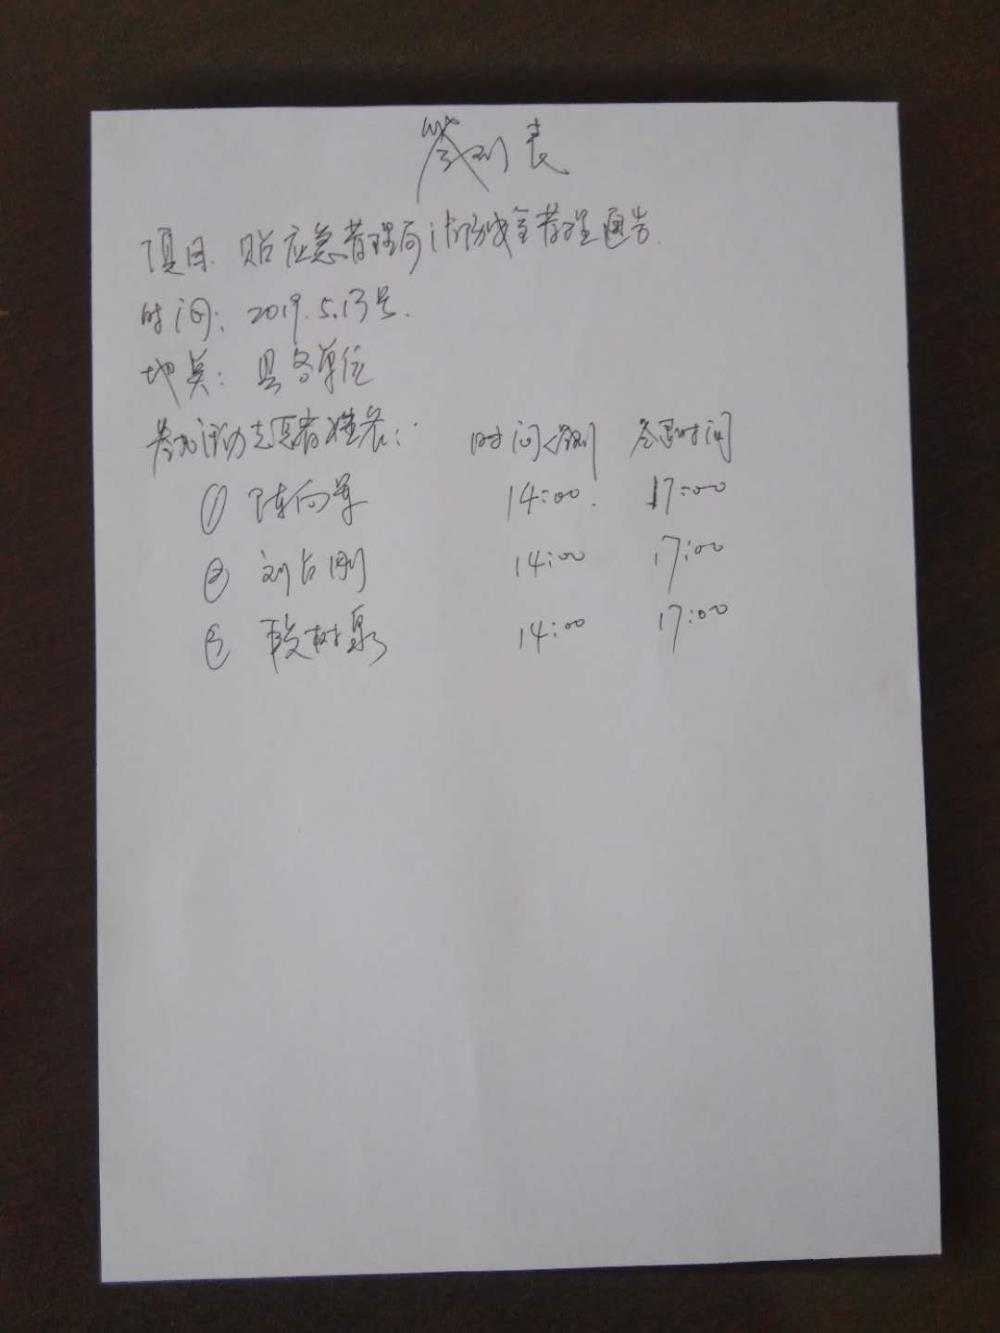 签到表
项目: 贴应急管理局消防安全管理通告.
时间: 2019.5.13号.
地点: 县各单位
参加活动志愿者姓名: 时间签到 签退时间
① 陈向军 14:00. 17:00
② 刘占刚 14:00 17:00
③ 段树泉 14:00 17:00